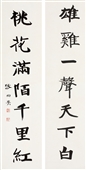 雄雞一聲天下白
桃花滿陌千里紅